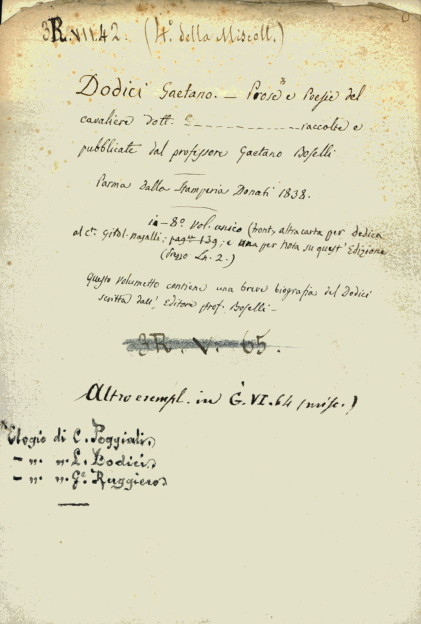 3R.VII.42. (4º. della Miscell.)
Dodici Gaetano. — Prose e Poesie del
cavaliere dott. G. ---------- raccolte e
pubblicate dal professore Gaetano Boselli
Parma dalla Stamperia Donati 1838.
in-8º. vol. unico (front., altra carta per dedica
al Cte. nasalli: pagine 139; e una per nota su quest' Edizione
(Prezzo Ln. 2.)
Questo volumetto contiene una breve biografia del Dodici
scritta dall' Editore prof. Boselli —
3R. V. 65.
Altro esempl. in G. VI. 64 (misc.)
Elogio di C. Poggiali,
— „ „ L. Dodici,
— „ „ Ruggiero